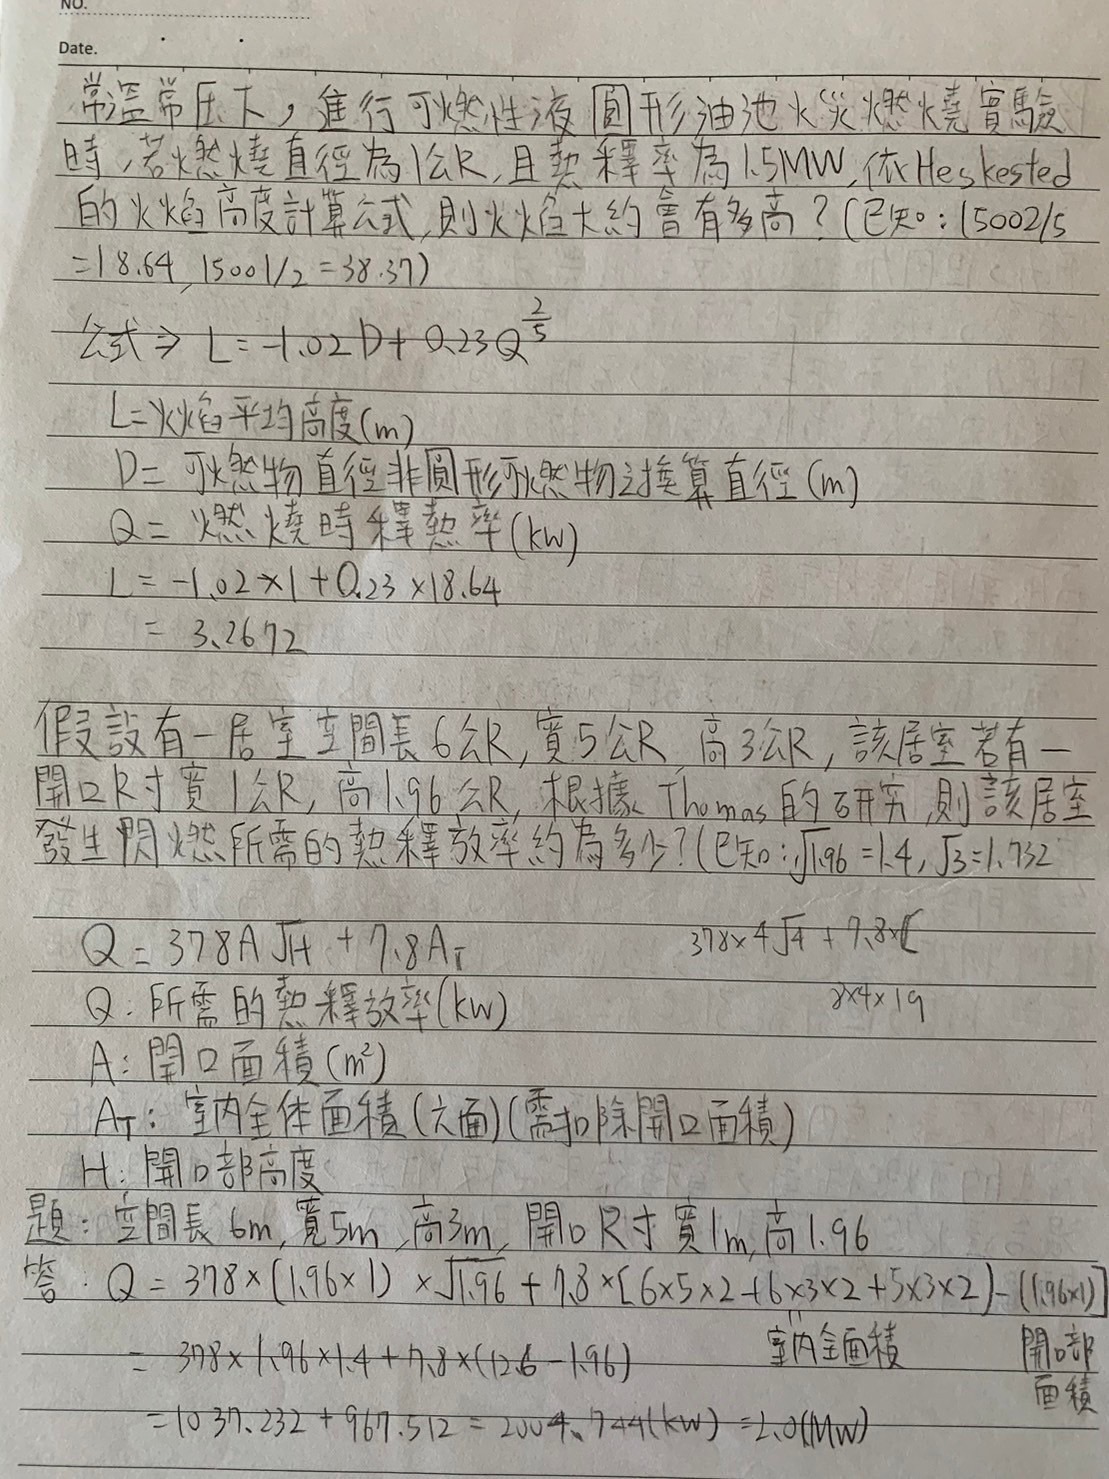 NO.
Date.
常溫常压下，進行可燃性液圓形油池火災燃燒實驗
時,若燃燒直徑為1公R,且熱釋率為1.5MW,依Heskested
的火焰高度計算公式,則火焰大約會有多高?(已知:15002/5
=18.64,15001/2=38.37)
公式⇒ L=-1.02D+0.23Q^(2/5)
L=火焰平均高度(m)
D=可燃物直徑非圓形可燃物之換算直徑(m)
Q=燃燒時釋熱率(kw)
L=-1.02×1+0.23×18.64
= 3.2672
假設有一居室空間長6公R,寬5公R,高3公R,該居室若有一
開口R寸寬1公R,高1.96公R,根據Thomas的研究,則該居室
發生閃燃所需的熱釋放率約為多少?(已知:√1.96=1.4,√3=1.732
Q=378A√H+7.8A_T
378×4√4+7.8×[
Q:所需的熱釋放率(kw)
2×4×19
A:開口面積(m²)
A_T:室内全体面積(六面)(需扣除開口面積)
H:開口部高度
題:空間長6m,寬5m,高3m,開口R寸寬1m,高1.96
答:Q=378×(1.96×1)×√1.96+7.8×[6×5×2+6×3×2+5×3×2)-(1.96×1)]
室内全面積 開口部
面積
= 378×1.96×1.4+7.8×(126-1.96)
=1037.232+967.512=2004.744(kw)=2.0(MW)